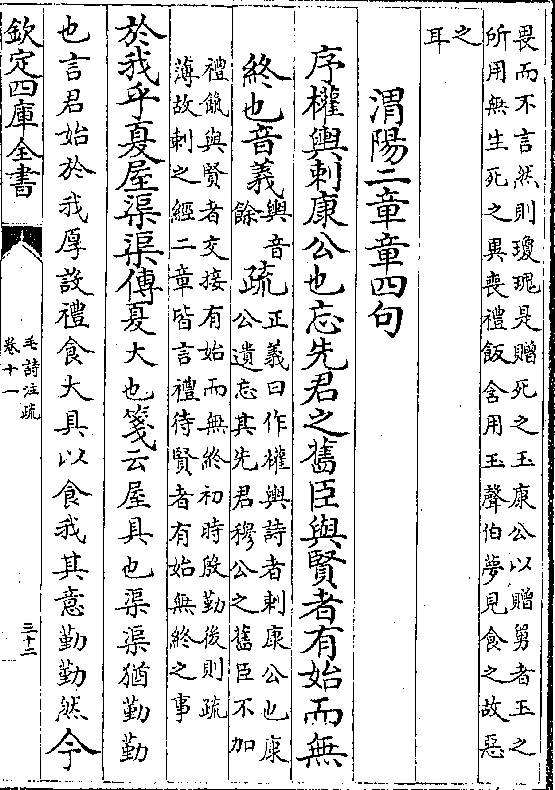 畏而不言然則瓊瑰是贈死之玉康公以贈舅者玉之
所用無生死之異喪禮飯含用玉聲伯夢見食之故惡
之
耳
渭陽二章章四句
序權輿刺康公也忘先君之舊臣與賢者有始而無
終也音義輿音餘疏正義曰作權輿詩者刺康公也康
公遺忘其先君穆公之舊臣不加
禮餼與賢者交接有始而無終初時殷勤後則疏
薄故刺之經二章皆言禮待賢者有始無終之事
於我乎夏屋渠渠傳夏大也箋云屋具也渠渠猶勤勤
也言君始於我厚設禮食大具以食我其意勤勤然今
欽定四庫全書
毛詩注疏
卷十一
三十二